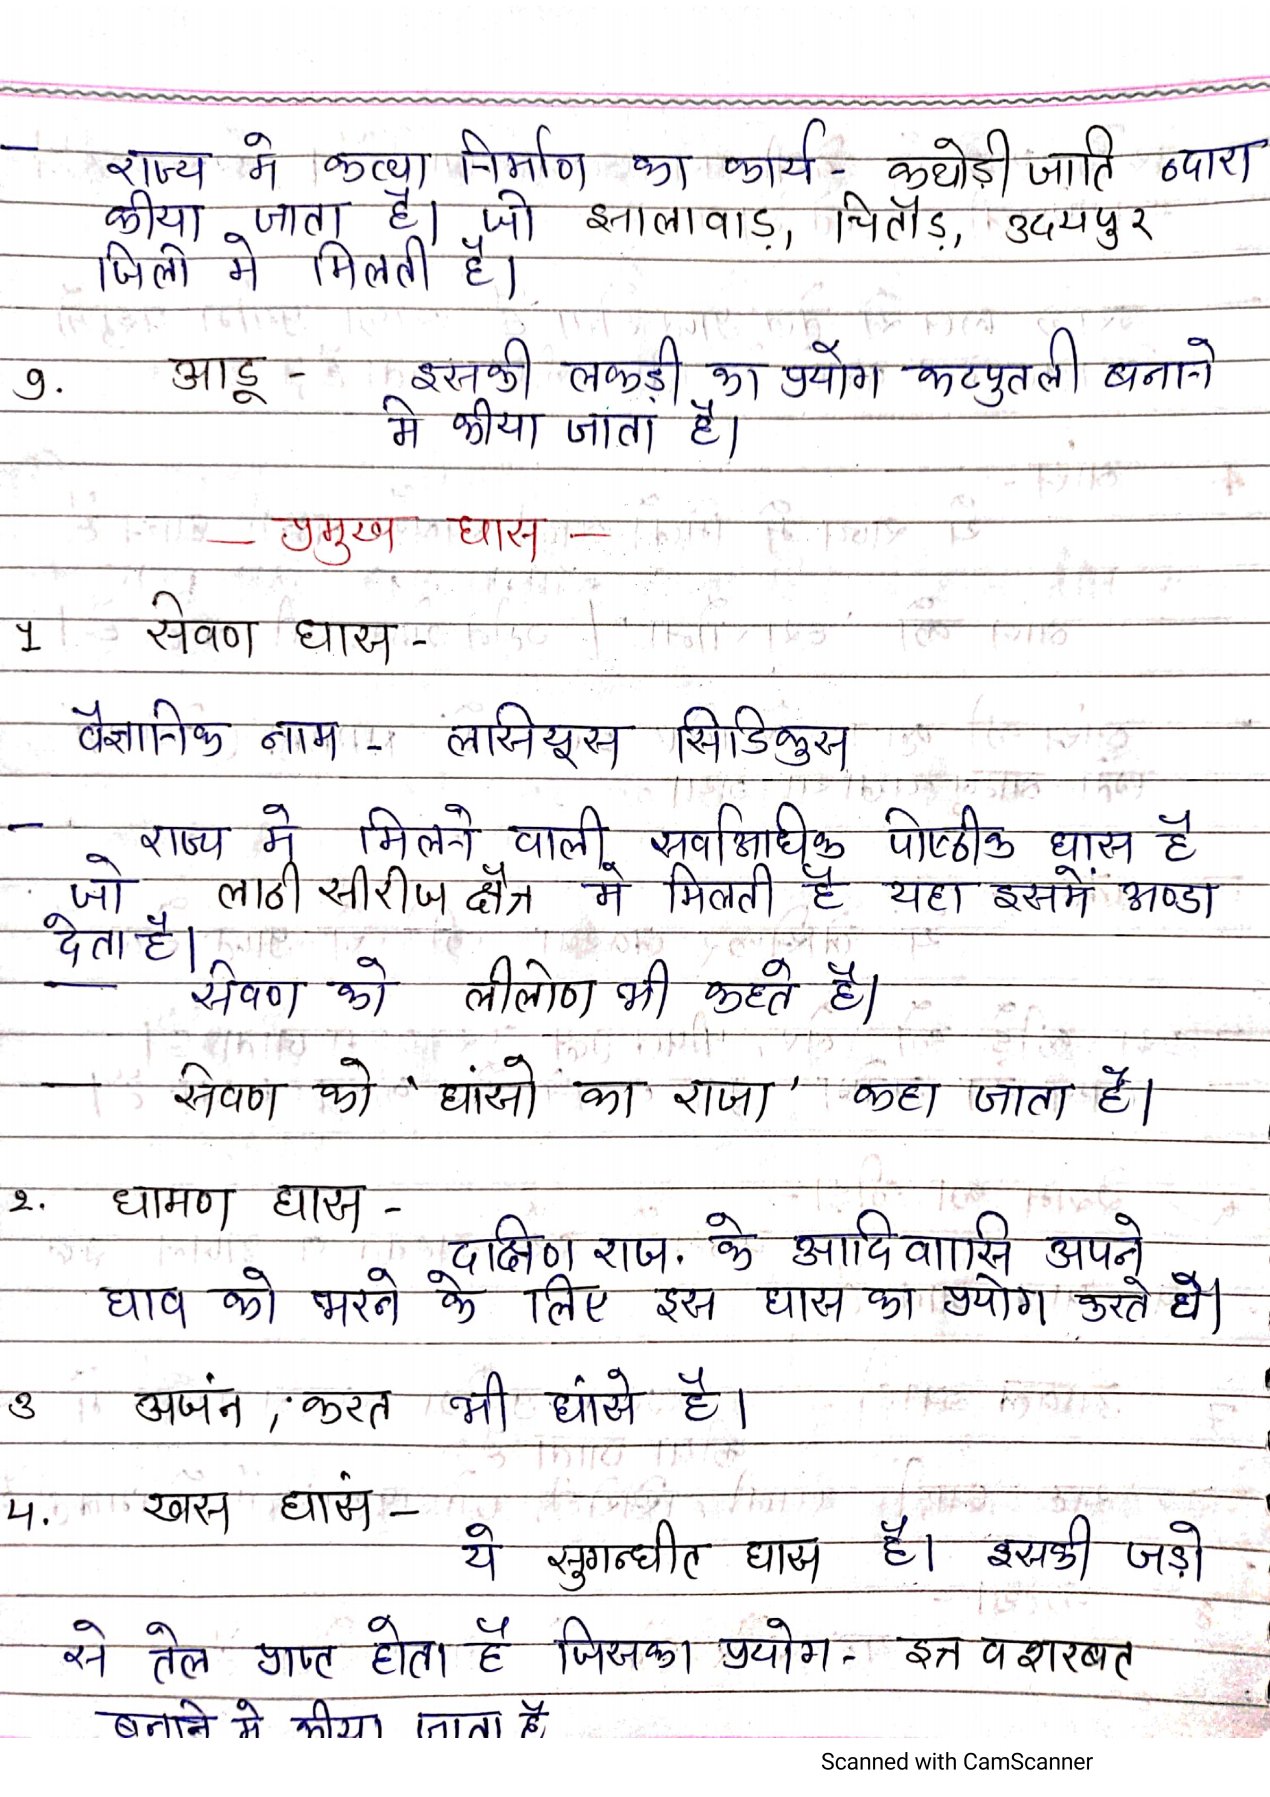 - राज्य मे कत्था निर्माण का कार्य - कथोड़ी जाति व्दारा
कीया जाता है। जो झालावाड़, चितौड़, उदयपुर
जिलो मे मिलती है।
9. आडू - इसकी लकड़ी का प्रयोग कटपुतली बनाने
मे कीया जाता है।
— प्रमुख घास —
1 सेवण घास -
वैज्ञानिक नाम - लासियूस सिडिकुस
- राज्य मे मिलने वाली सर्वाअधिक पोष्ठीक घास है
जो लाठी सीरीज क्षैत्र मे मिलती है यहा इसमें अण्डा
देता है।
— सेवण को लीलोण भी कहते है।
— सेवण को 'घांसो का राजा' कहा जाता है।
2. धामण घास -
दक्षिण राज. के आदिवासि अपने
घाव को भरने के लिए इस घास का प्रयोग करते थे।
3 अजंन, करत भी घांसे है।
4. खस घासं -
ये सुगन्धीत घास है। इसकी जड़ो
से तेल प्राप्त होता है जिसका प्रयोग - इत्र व शरबत
बनाने मे कीया जाता है
Scanned with CamScanner